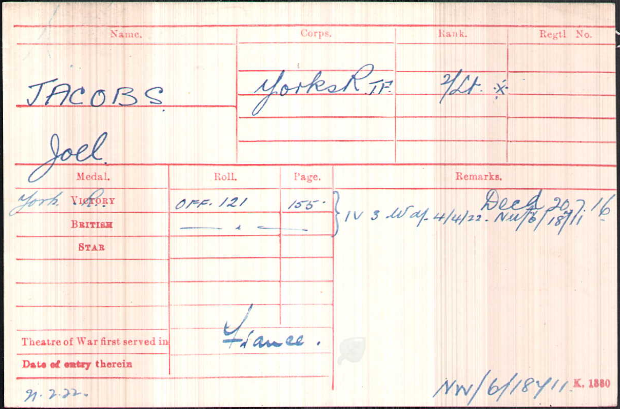 Name. Corps. Rank. Regtl No.
JACOBS Yorks R. TF. 2/Lt. x
Joel
Medal. Roll. Page. Remarks.
York. R. VICTORY OFF. 121 155. Decd 20.7.16
BRITISH — " — IV 3 4/4/22. NW/6/18711
STAR
Theatre of War first served in France.
Date of entry therein
21.2.22. NW/6/18711. K. 1380